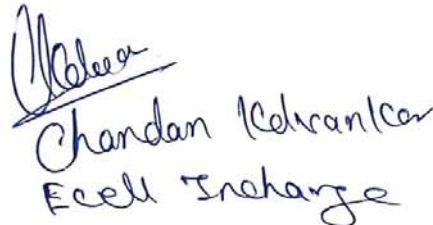 Chandan Kolvankar
Ecell Incharge